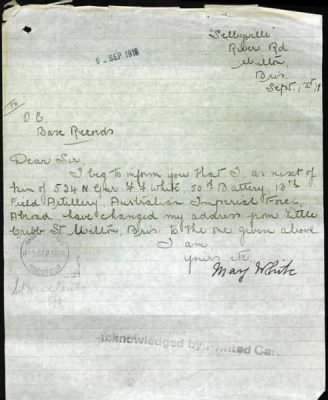 "Selbyville"
River Rd
Milton,
Bris.
Sept, 2nd/18
SEP 1918
To
O.C.
Base Records
Dear Sir
I beg to inform you that I, as next of
kin of 524 N Gnr. F J White, 50th Battery, 13th
Field Artillery, Australian Imperial Force,
Abroad have changed my address from Little
Cribb St Milton, Bris. to the one given above
I am
Yours etc.
May White
Acknowledged by Printed Car